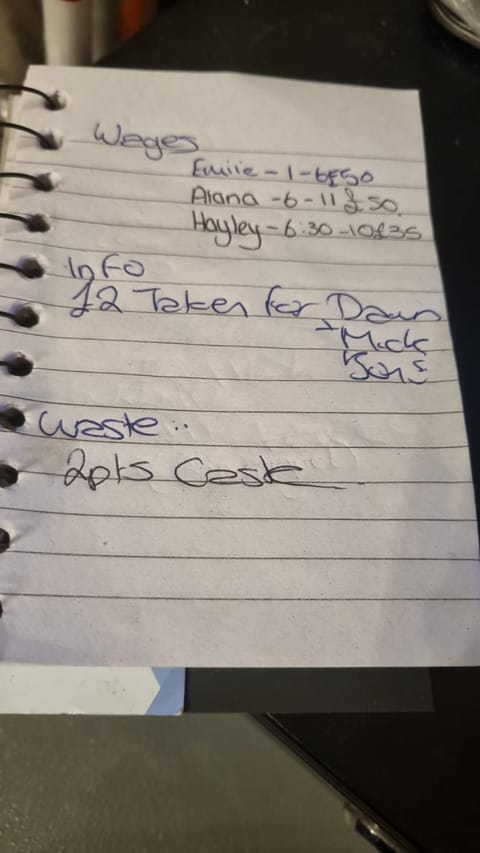 Wages
Emilie - 1 - 6 £50
Alana - 6 - 11 £50.
Hayley - 6:30 - 10 £35
Info
£2 Taken for Dean
+ Mick
Bons
Waste..
2pts Cask